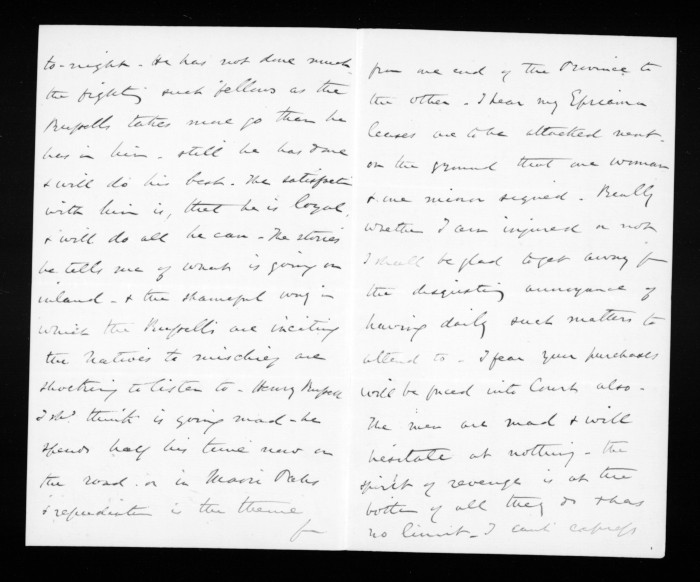 to-night - He has not done much
the fighting such fellows as the
Russells takes more go than he
has in him - still he has done
& will do his best - The satisfaction
with him is, that he is loyal,
& will do all he can - The stories
he tells me of what is going on
inland - & the shameful way in
which the Russells are inciting
the Natives to mischief are
shocking to listen to - Henry Russell
I shd think is going mad - he
spends half his time now on
the road or in Maori Pahs
& repudiation is the theme
from one end of the Province to
the other - I hear my
leases are to be attacked next -
on the ground that one woman
& one minor signed - Really
whether I am injured or not
I shall be glad to get away from
the disgusting annoyance of
having daily such matters to
attend to - I fear your purchases
will be forced into Court also -
The men are mad & will
hesitate at nothing - the
spirit of revenge is at the
bottom of all they do & has
no limit - I can't express